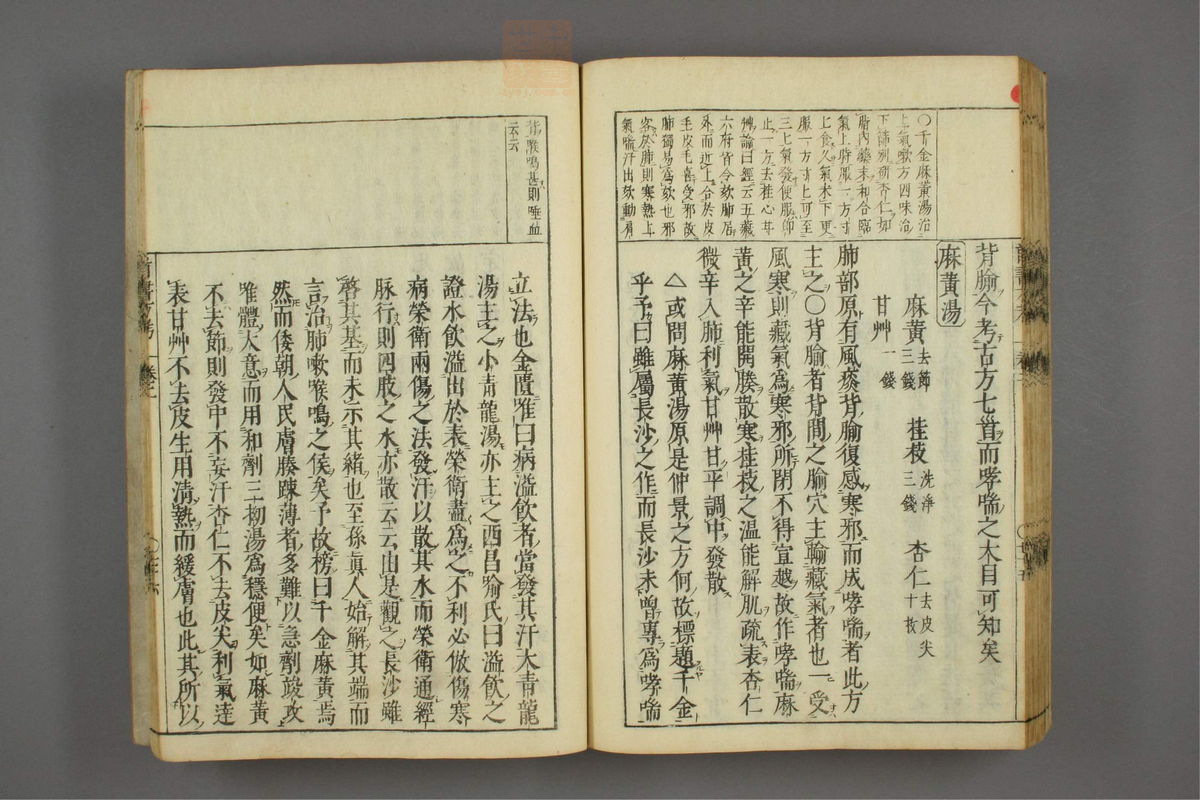 〇千金麻黃湯治
上氣嗽方四味治
下篩別研杏仁如
脂內藥末和合臨
氣上時服一方寸
匕食久氣未下更
服一方寸匕可至
三匕氣發便服節
止一方去桂心甘
艸論曰經云五藏
六府皆令欬肺居
外而近上合於皮
毛皮毛喜受邪故
肺獨易爲欬也邪
客於肺則寒熱上
氣喘汗出欬動肩
背腧今考古方七首而哮喘之大目可知矣
麻黃湯
麻黃去節三錢 桂枝洗淨三錢 杏仁去皮尖十枚
甘艸一錢
肺部原有風痰背腧復感寒邪而成哮喘者此方
主之〇背腧者背間之腧穴主輸藏氣者也一受
風寒則藏氣爲寒邪所閉不得宣越故作哮喘麻
黃之辛能開腠散寒桂枝之温能解肌疏表杏仁
微辛入肺利氣甘艸甘平調中發散
△或問麻黃湯原是仲景之方何故標題千金
乎予曰雖屬長沙之作而長沙未曾專爲哮喘
背喉鳴甚則唾血
云云
立法也金匱唯曰病溢飲者當發其汗大青龍
湯主之小青龍湯亦主之西昌喻氏曰溢飲之
證水飲溢出於表榮衛盡爲之不利必倣傷寒
病榮衛兩傷之法發汗以散其水而榮衛通經
脉行則四肢之水亦散云云由是觀之長沙雖
啓其基而未示其緒也至孫眞人始解其端而
言治肺嗽喉鳴之侯矣予故榜曰千金麻黃焉
然而倭朝人民膚腠踈薄者多難以急劑竣攻
唯體大意而用和劑三拗湯爲穩便矣如麻黃
不去節則發中不妄汗杏仁不去皮尖利氣達
表甘艸不去皮生用清熱而緩膚也此其所以